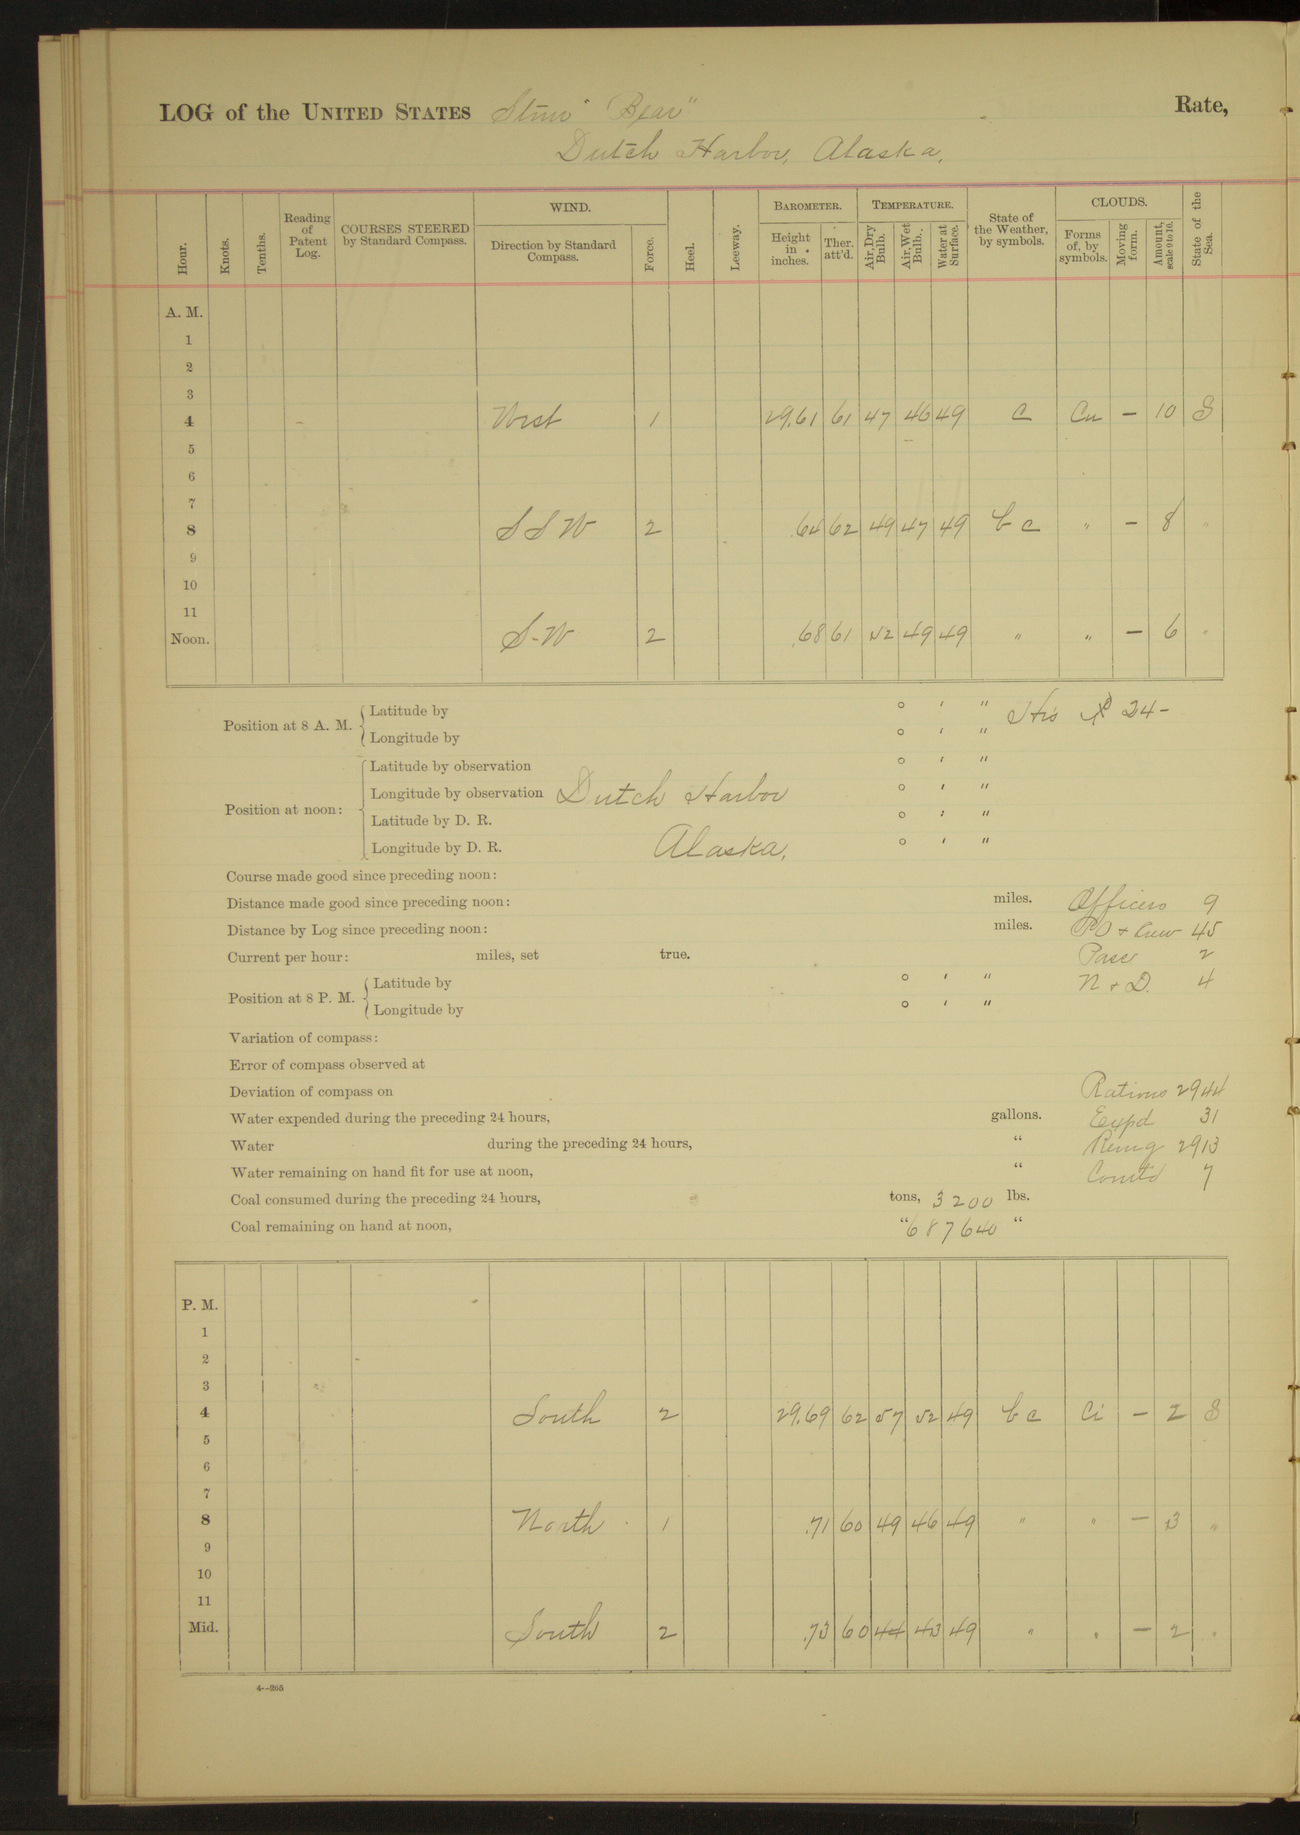 LOG of the UNITED STATES Stmr "Bear" Rate,
Dutch Harbor, Alaska.
Hour. Knots. Tenths. Reading of Patent Log. COURSES STEERED by Standard Compass. WIND. Direction by Standard Compass. Force. Heel. Leeway. BAROMETER. Height in inches. Ther. att'd. TEMPERATURE. Air, Dry Bulb. Air, Wet Bulb. Water at Surface. State of the Weather, by symbols. CLOUDS. Forms of, by symbols. Moving form. Amount, scale 0 to 10. State of the Sea.
A. M.
1
2
3
4 West 1 29.61 61 47 46 49 c Cu — 10 S
5
6
7
8 SSW 2 .64 62 49 47 49 b c " — 8 "
9
10
11
Noon. S-W 2 .68 61 52 49 49 " " — 6 "
Position at 8 A. M. Latitude by ° ′ ″
Longitude by ° ′ ″
24-
Position at noon: Latitude by observation ° ′ ″
Longitude by observation Dutch Harbor ° ′ ″
Latitude by D. R. ° ′ ″
Longitude by D. R. Alaska, ° ′ ″
Course made good since preceding noon:
Distance made good since preceding noon: miles. Officers 9
Distance by Log since preceding noon: miles. PO + Crew 45
Current per hour: miles, set true. Pass 2
Position at 8 P. M. Latitude by ° ′ ″ N + D. 4
Longitude by ° ′ ″
Variation of compass:
Error of compass observed at
Deviation of compass on Rations 2944
Water expended during the preceding 24 hours, gallons. Expd 31
Water during the preceding 24 hours, " Remg 2913
Water remaining on hand fit for use at noon, " Comtd 7
Coal consumed during the preceding 24 hours, tons, 3200 lbs.
Coal remaining on hand at noon, " 687640 "
P. M.
1
2
3
4 South 2 29.69 62 57 52 49 b c Ci — 2 S
5
6
7
8 North 1 .71 60 49 46 49 " " — 3 "
9
10
11
Mid. South 2 .73 60 44 43 49 " " — 2 "
4--265